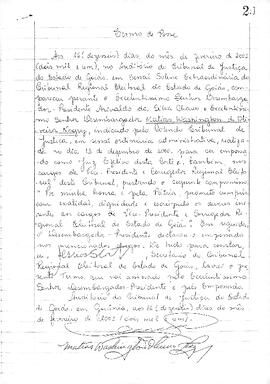 2.
Termo de Posse
Aos 16 (dezesseis) dias do mês de fevereiro de 2001
(dois mil e um), no Auditório do Tribunal de Justiça
do Estado de Goiás, em Sessão Solene Extraordinária do
Tribunal Regional Eleitoral do Estado de Goiás, com-
pareceu perante o Excelentíssimo Senhor Desembarga-
dor-Presidente da Silva Chaves o Excelentíssi-
mo Senhor Desembargador Matias Washington de Oli-
veira Negry, indicado pelo Tribunal de
Justiça, em sessão ordinária administrativa, realiza-
da no dia 13 de dezembro de 2000, para ser empossa-
do como Juiz Efetivo desta Corte e, também nos
cargos de Vice-Presidente e Corregedor Regional Eleito-
ral deste Tribunal, prestando o seguinte compromisso:
Por minha honra e pela Pátria prometo cumprir
com exatidão, dignidade e escrúpulo os deveres ine-
rentes aos cargos de Vice-Presidente e Corregedor Re-
gional Eleitoral do Estado de Goiás. Em seguida,
o Desembargador-Presidente declarou-o empossado
nos mencionados cargos. De tudo para constar,
eu, Secretário do Tribunal
Regional Eleitoral do Estado de Goiás, lavrei o pre-
sente Termo, que vai assinado pelo Excelentíssimo
Senhor Desembargador-Presidente e pelo Empossado.
Auditório do Tribunal de Justiça do Estado
de Goiás, em Goiânia, aos 16 (dezesseis) dias do mês
de fevereiro de 2001 (dois mil e um).
Matias Washington Oliveira Negry